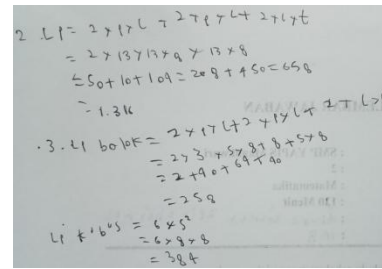 2. LP = 2 x p x l + 2 x p x t + 2 x l x t
= 2 x 13 x 13 x 9 x 13 x 8
= 50 + 10 + 109 = 208 + 450 = 658
= 1.316
.3. LP balok = 2 x p x l + 2 x p x t + 2 + l x
= 2 x 3 x 5 x 8 + 8 + 5 x 8
= 2 + 90 + 64 + 40
= 258
LP kubus = 6 x s²
= 6 x 8 x 8
= 384